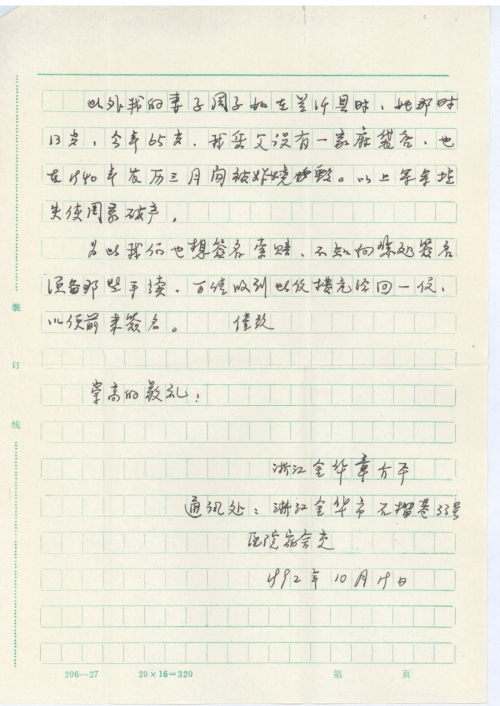 此外我的妻子周子如在兰汗县时，她那时
13岁，今年65岁，我岳父设有一家麻袋店，也
在1940年农历三月间被炸烧毁。以上等店
失使周家破产。
为此我们也想签名索赔，不知向签名
须备那些手续，百忙收到此信擡充给回一信，
以便前来签名。 佳致
崇高的敬礼！
浙江金华章方平
通讯处：浙江金华市 巷33号
医院宿舍交
1992年10月19日
装
订
线
206—27 20×16=320 第 页